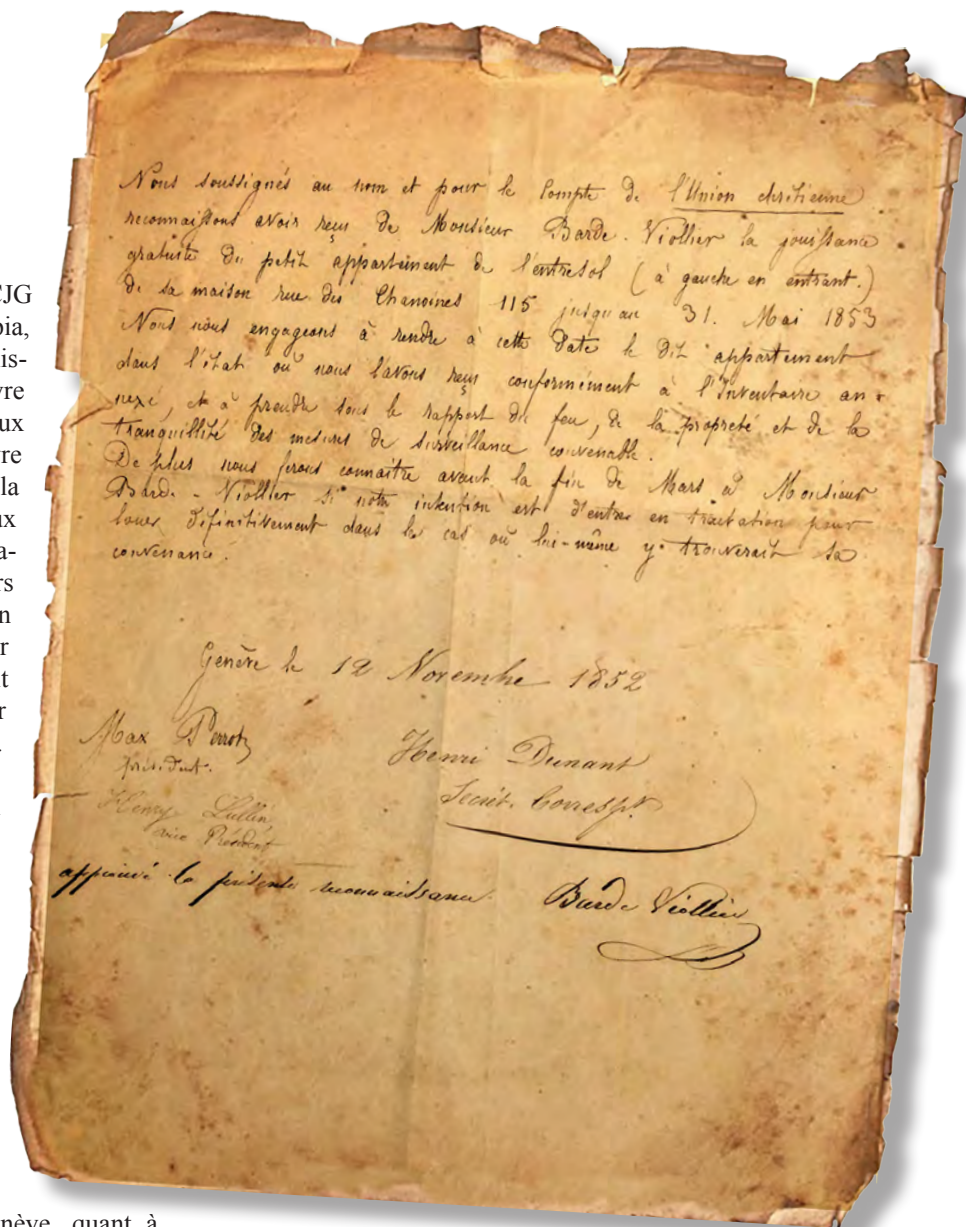 CJG
bia,
is-
vre
ux
re
la
ux
a-
rs
n
r
t
r
Nous soussignés au nom et pour le Compte de l'Union chrétienne
reconnaissons avoir reçu de Monsieur Barde-Viollier la jouissance
gratuite du petit appartement de l'entresol (à gauche en entrant.)
de sa maison rue des Chanoines 115 jusqu'au 31. Mai 1853
Nous nous engageons à rendre à cette date le dit appartement
dans l'état où nous l'avons reçu conformément à l'Inventaire an-
nexé, et à prendre sous le rapport du feu, de la propreté et de la
tranquillité des mesures de surveillance convenable.
De plus nous ferons connaitre avant la fin de Mars à Monsieur
Barde-Viollier si notre intention est d'entrer en traitation pour
louer définitivement dans le cas où lui-même y trouverait sa
convenance.
Genève le 12 Novembre 1852
Max Perrot
président.
Henri Dunant
Secrét. Correspt.
Henry Lullin
vice Président
approuvé la présente reconnaissance. Barde Viollier
nève, quant à